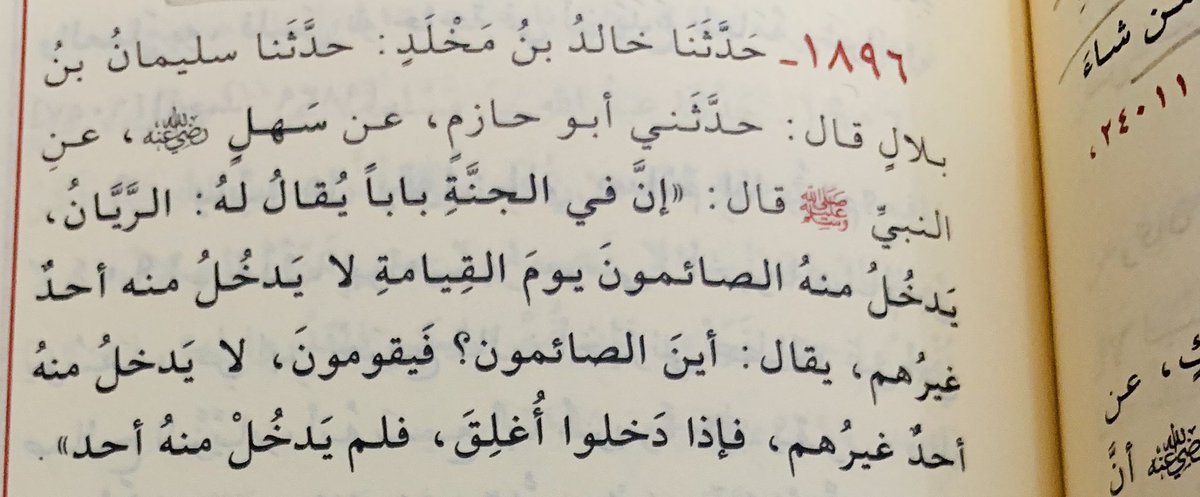 ١٨٩٦- حَدَّثَنَا خالدُ بنُ مَخْلَدٍ: حدَّثَنا سليمانُ بنُ
بلالٍ قال: حدَّثَني أبو حازمٍ، عن سَهلٍ رضي الله عنه، عنِ
النبيِّ ﷺ قال: «إنَّ في الجنَّةِ باباً يُقالُ لهُ: الرَّيَّانُ،
يَدخُلُ منهُ الصائمونَ يومَ القِيامةِ لا يَدخُلُ منه أحدٌ
غيرُهم، يقال: أينَ الصائمون؟ فَيقومونَ، لا يَدخلُ منهُ
أحدٌ غيرُهم، فإذا دَخلوا أُغلِقَ، فلم يَدخُلْ منهُ أحد».
من شاءَ
٢٤٠١١،
، عن
رضي الله عنه أنَّ